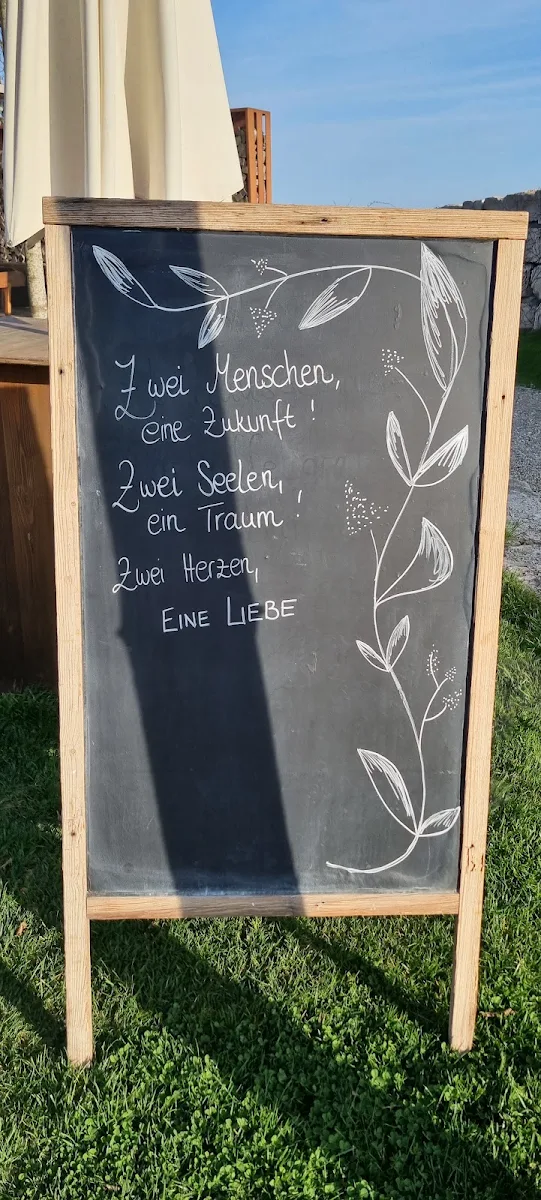 Zwei Menschen,
eine Zukunft!
Zwei Seelen,
ein Traum!
Zwei Herzen,
EINE LIEBE